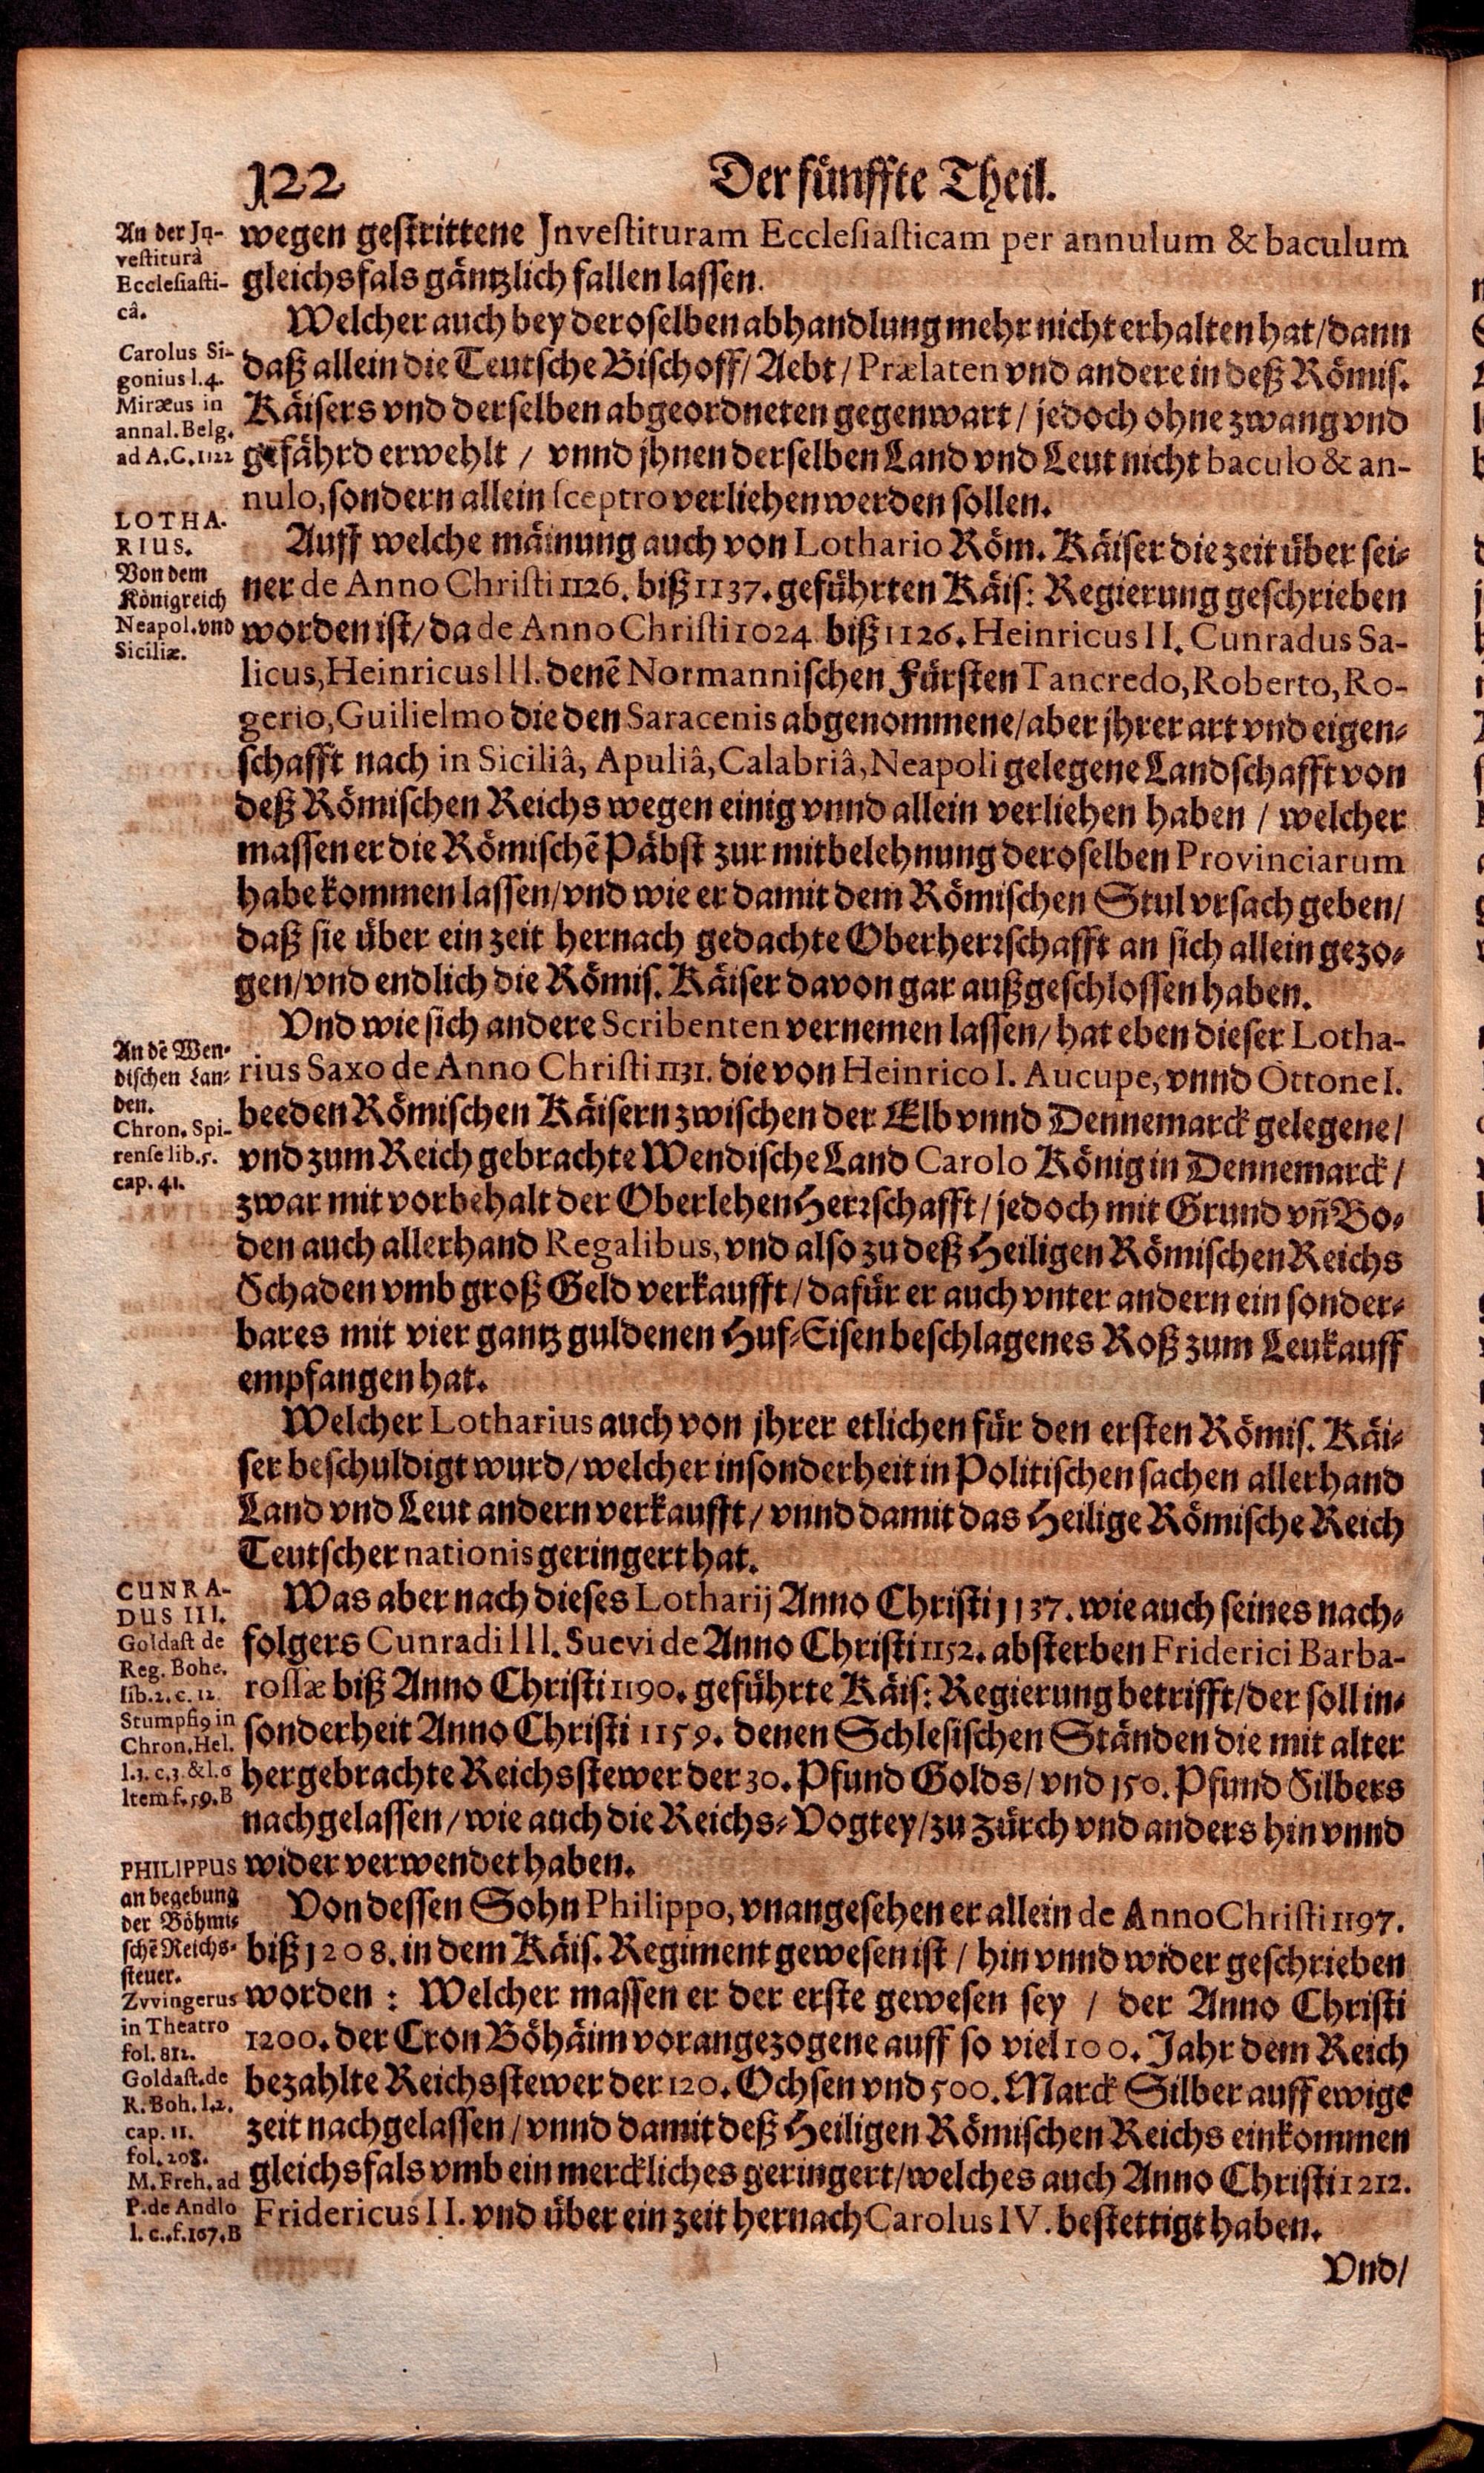 122 Der fünffte Theil.
An der In-
vestiturâ
Ecclesiasti-
câ.
wegen gestrittene Investituram Ecclesiasticam per annulum & baculum
gleichsfals gäntzlich fallen lassen.
Welcher auch bey deroselben abhandlung mehr nicht erhalten hat/ dann
Carolus Si-
gonius l.4.
Miræus in
annal. Belg.
ad A.C. 1122
daß allein die Teutsche Bischoff/ Aebt/ Prælaten vnd andere in deß Römis.
Käisers vnd derselben abgeordneten gegenwart/ jedoch ohne zwang vnd
gefährd erwehlt / vnnd jhnen derselben Land vnd Leut nicht baculo & an-
nulo, sondern allein sceptro verliehen werden sollen.
LOTHA-
RIUS.
Von dem
Königreich
Neapol. vnd
Siciliæ.
Auff welche mäinung auch von Lothario Röm. Käiser die zeit über sei-
ner de Anno Christi 1126. biß 1137. geführten Käis: Regierung geschrieben
worden ist/ da de Anno Christi 1024 biß 1126. Heinricus II. Cunradus Sa-
licus, Heinricus III. denē Normannischen Fürsten Tancredo, Roberto, Ro-
gerio, Guilielmo die den Saracenis abgenommene/ aber jhrer art vnd eigen-
schafft nach in Siciliâ, Apuliâ, Calabriâ, Neapoli gelegene Landschafft von
deß Römischen Reichs wegen einig vnnd allein verliehen haben / welcher
massen er die Römischē Päbst zur mitbelehnung deroselben Provinciarum
habe kommen lassen/ vnd wie er damit dem Römischen Stul vrsach geben/
daß sie über ein zeit hernach gedachte Oberherrschafft an sich allein gezo-
gen/ vnd endlich die Römis. Käiser davon gar außgeschlossen haben.
An dē Wen-
dischen Lan-
den.
Chron. Spi-
rense lib. 5.
cap. 41.
Vnd wie sich andere Scribenten vernemen lassen/ hat eben dieser Lotha-
rius Saxo de Anno Christi 1131. die von Heinrico I. Aucupe, vnnd Ottone I.
beeden Römischen Käisern zwischen der Elb vnnd Dennemarck gelegene/
vnd zum Reich gebrachte Wendische Land Carolo König in Dennemarck/
zwar mit vorbehalt der Oberlehen Herrschafft/ jedoch mit Grund vñ Bo-
den auch allerhand Regalibus, vnd also zu deß Heiligen Römischen Reichs
Schaden vmb groß Geld verkaufft/ dafür er auch vnter andern ein sonder-
bares mit vier gantz guldenen Huf-Eisen beschlagenes Roß zum Leukauff
empfangen hat.
Welcher Lotharius auch von jhrer etlichen für den ersten Römis. Käi-
ser beschuldigt wurd/ welcher insonderheit in Politischen sachen allerhand
Land vnd Leut andern verkaufft/ vnnd damit das Heilige Römische Reich
Teutscher nationis geringert hat.
CUNRA-
DUS III.
Goldast de
Reg. Bohe.
lib. 2. c. 12.
Stumpfi9 in
Chron. Hel.
l.3. c.3. & l.6
Item f. 59. B
Was aber nach dieses Lotharij Anno Christi 1137. wie auch seines nach-
folgers Cunradi III. Suevi de Anno Christi 1152. absterben Friderici Barba-
rossæ biß Anno Christi 1190. geführte Käis: Regierung betrifft/ der soll in-
sonderheit Anno Christi 1159. denen Schlesischen Ständen die mit alter
hergebrachte Reichsstewer der 30. Pfund Golds/ vnd 150. Pfund Silbers
nachgelassen/ wie auch die Reichs-Vogtey/ zu Zürch vnd anders hin vnnd
wider verwendet haben.
PHILIPPUS
an begebung
der Böhmi-
schē Reichs-
steuer.
Zvvingerus
in Theatro
fol. 812.
Goldast. de
R. Boh. l.2.
cap. 11.
fol. 208.
M. Freh. ad
P. de Andlo
l. c., f. 167. B
Von dessen Sohn Philippo, vnangesehen er allein de Anno Christi 1197.
biß 1208. in dem Käis. Regiment gewesen ist / hin vnnd wider geschrieben
worden : Welcher massen er der erste gewesen sey / der Anno Christi
1200. der Cron Böhäim vorangezogene auff so viel 100. Jahr dem Reich
bezahlte Reichsstewer der 120. Ochsen vnd 500. Marck Silber auff ewige
zeit nachgelassen/ vnnd damit deß Heiligen Römischen Reichs einkommen
gleichsfals vmb ein merckliches geringert/ welches auch Anno Christi 1212.
Fridericus II. vnd über ein zeit hernach Carolus IV. bestettigt haben.
Vnd/